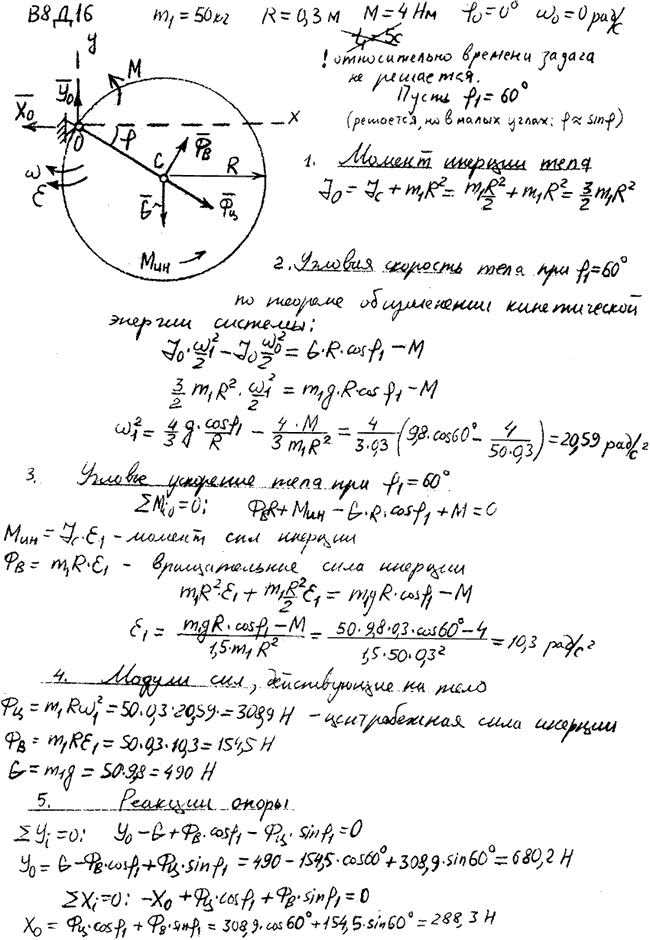 В8Д16 m₁=50кг R=0,3м M=4Нм φ₀=0° ω₀=0 рад/с
t₁=5с
! относительно времени задача
не решается.
Пусть φ₁=60°
(решается, но в малых углах: φ≈sinφ)
y
M
X̄₀
Ȳ₀
O
φ
x
Φ̄в
C
R
ω
ε
Ḡ
Φ̄ц
Mин
1. Момент инерции тела
J₀ = Jc + m₁R² = m₁R²/2 + m₁R² = 3/2 m₁R²
2. Угловая скорость тела при φ₁=60°
по теореме об изменении кинетической
энергии системы:
J₀·ω₁²/2 − J₀ω₀²/2 = G·R·cosφ₁ − M
3/2 m₁R²·ω₁²/2 = m₁g·R·cosφ₁ − M
ω₁² = 4/3 g·cosφ₁/R − 4·M/3m₁R² = 4/3·0,3 (9,8·cos60° − 4/50·0,3) = 20,59 рад/с²
3. Угловое ускорение тела при φ₁=60°
ΣMi₀=0: ΦвR + Mин − G·R·cosφ₁ + M = 0
Mин = Jc·ε₁ - момент сил инерции
Φв = m₁R·ε₁ - вращательные сила инерции
m₁R²·ε₁ + m₁R²/2 ε₁ = m₁gR·cosφ₁ − M
ε₁ = m₁gR·cosφ₁ − M/1,5·m₁R² = 50·9,8·0,3·cos60° − 4/1,5·50·0,3² = 10,3 рад/с²
4. Модули сил, действующие на тело
Φц = m₁Rω₁² = 50·0,3·20,59 = 308,9 Н - центробежная сила инерции
Φв = m₁Rε₁ = 50·0,3·10,3 = 154,5 Н
G = m₁g = 50·9,8 = 490 Н
5. Реакции опоры
ΣYi=0: Y₀ − G + Φв·cosφ₁ − Φц·sinφ₁ = 0
Y₀ = G − Φв·cosφ₁ + Φц·sinφ₁ = 490 − 154,5·cos60° + 308,9·sin60° = 680,2 Н
ΣXi=0: −X₀ + Φц·cosφ₁ + Φв·sinφ₁ = 0
X₀ = Φц·cosφ₁ + Φв·sinφ₁ = 308,9·cos60° + 154,5·sin60° = 288,3 Н